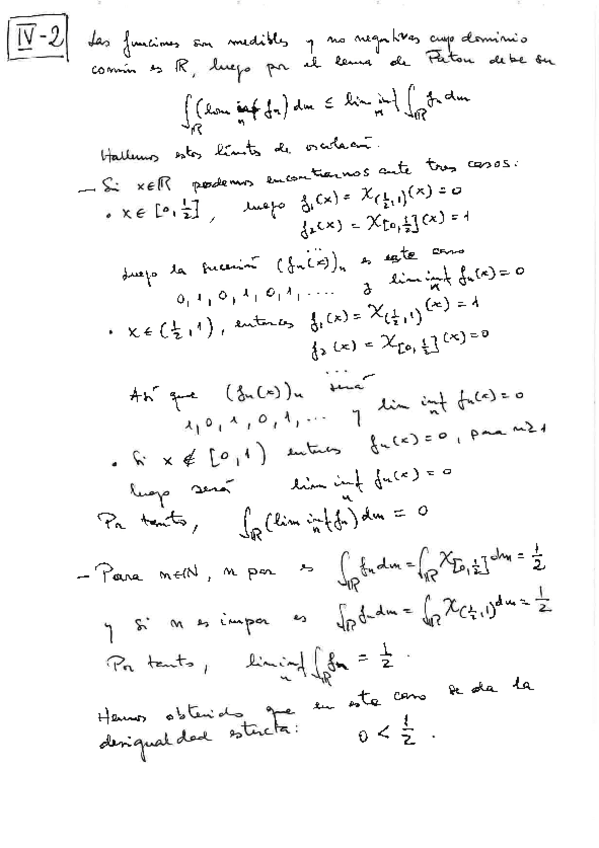 IV-2 Las funciones son medibles y no negativas cuyo dominio
común es ℝ, luego por el lema de Fatou debe ser
∫_ℝ (lim inf_n f_n) dm ≤ lim inf_n ∫_ℝ f_n dm
Hallemos estos límites de oscilación.
— Si x∈ℝ podemos encontrarnos ante tres casos:
• x ∈ [0, 1/2], luego f₁(x) = χ_(1/2,1)(x) = 0
f₂(x) = χ_[0,1/2](x) = 1
...
Luego la sucesión (f_n(x))_n es en este caso
0, 1, 0, 1, 0, 1, .... y lim inf_n f_n(x) = 0
• x ∈ (1/2, 1), entonces f₁(x) = χ_(1/2,1)(x) = 1
f₂(x) = χ_[0,1/2](x) = 0
...
Así que (f_n(x))_n será
1, 0, 1, 0, 1, ... y lim inf_n f_n(x) = 0
• Si x ∉ [0, 1) entonces f_n(x) = 0, para n ≥ 1
luego será lim inf_n f_n(x) = 0
Por tanto, ∫_ℝ (lim inf_n f_n) dm = 0
— Para n∈ℕ, n par es ∫_ℝ f_n dm = ∫_ℝ χ_[0,1/2] dm = 1/2
y si n es impar es ∫_ℝ f_n dm = ∫_ℝ χ_(1/2,1) dm = 1/2
Por tanto, lim inf_n ∫_ℝ f_n = 1/2.
Hemos obtenido que en este caso se da la
desigualdad estricta: 0 < 1/2.